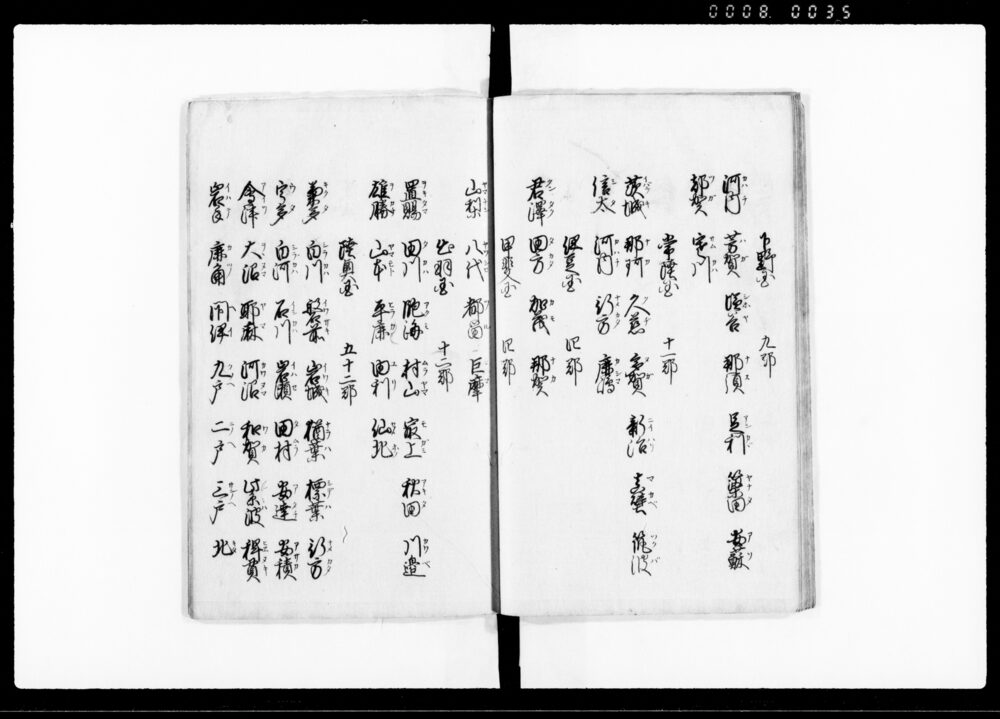 0008 0035
下野国 九郡
河内 芳賀 塩谷 那須 足利 簗田 安蘇
都賀 寒川
常陸国 十一郡
茨城 那珂 久慈 多賀 新治 真壁 筑波
信太 河内 行方 鹿嶋
伊豆国 四郡
君澤 田方 加茂 那賀
甲斐国 四郡
山梨 八代 都留 巨摩
出羽国 十二郡
置賜 田川 飽海 村山 最上 秋田 川辺
雄勝 山本 平鹿 由利 仙北
陸奥国 五十二郡
菊多 白川 磐前 岩城 楢葉 標葉 行方
宇多 白河 石川 岩瀬 田村 安達 安積
会津 大沼 耶麻 河沼 和賀 紫波 稗貫
岩手 鹿角 閉伊 九戸 二戸 三戸 北